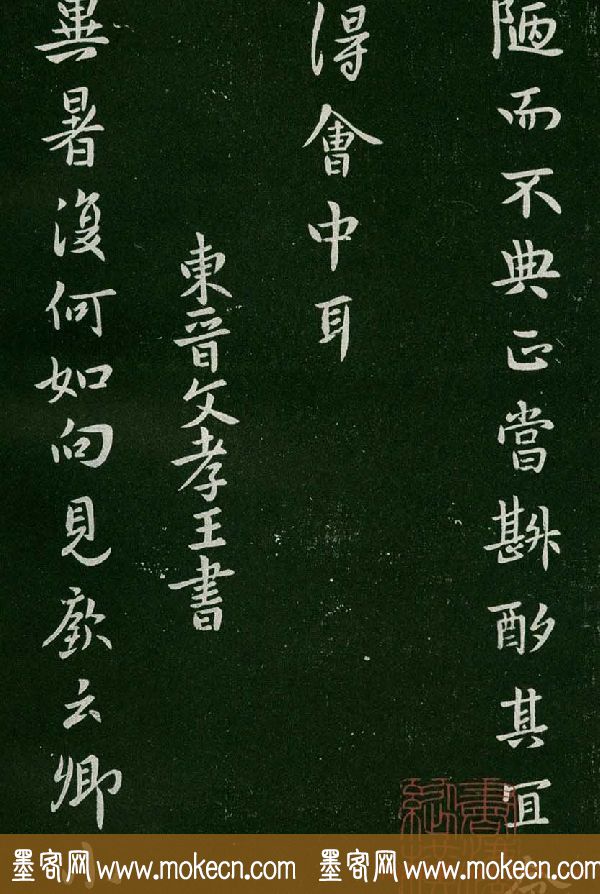 陋而不典正當斟酌其宜
得會中耳
東晉文孝王書
異暑復何如向見歆云卿
墨客网 www.mokecn.com 墨客网 www.mokecn.com